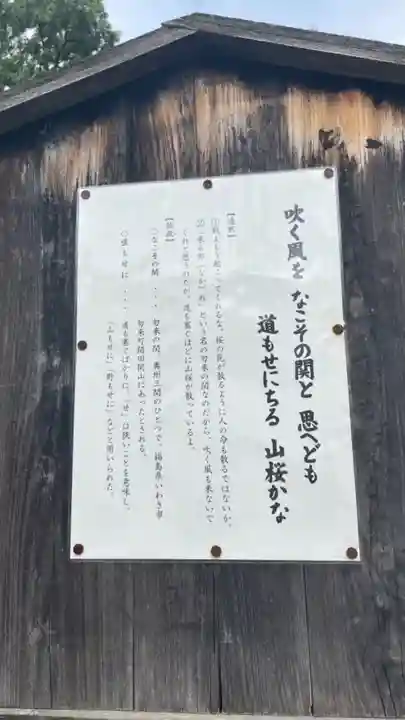 吹く風を なこその関と 思へども
道もせにちる 山桜かな
【通釈】
①戦よもう起こってくれるな。桜の花が散るように人の命も散るではないか。
②「来る勿(なか)れ」という名の勿来の関なのだから、吹く風も来ないで
くれと思うのだが、道も塞ぐほどに山桜が散っているよ。
【語釈】
○なこその関 ・・・ 勿来の関、奥州三関のひとつで、福島県いわき市
勿来町関田関山にあったとされる。
○道もせに ・・・ 道も塞ぐばかりに、「せ」は狭いことを意味し、
「山もせに」「野もせに」などと用いられた。